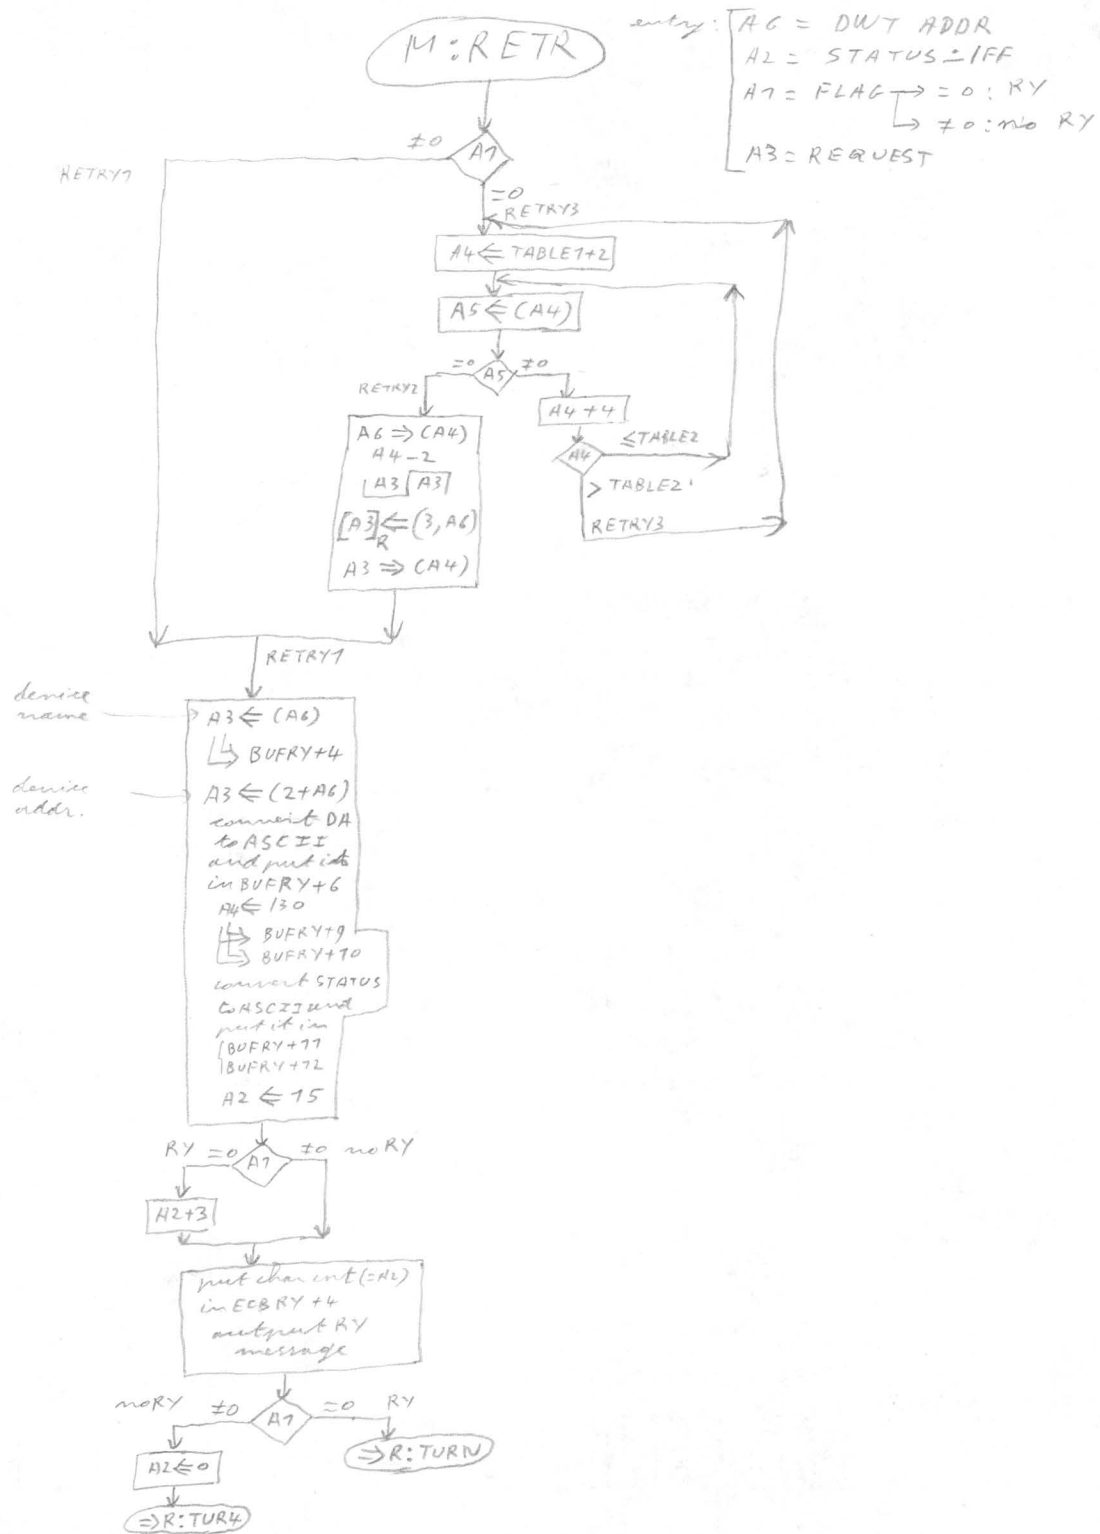 M:RETR
entry: A6 = DWT ADDR
A2 = STATUS
A1 = FLAG → = 0 : RY
↳ ≠ 0 : no RY
A3 = REQUEST
≠0
A1
RETRY1
=0
RETRY3
A4 ⇐ TABLE1+2
A5 ⇐ (A4)
=0
A5
≠0
RETRY2
A4+4
A6 ⇒ (A4)
A4-2
A3 A3
[A3] ⇐ (3, A6)
R
A3 ⇒ (A4)
A4
≤TABLE2
> TABLE2
RETRY3
RETRY1
device
name
A3 ⇐ (A6)
↳ BUFRY+4
device
addr.
A3 ⇐ (2+A6)
convert DA
to ASCII
and put it
in BUFRY+6
A4 ⇐ /30
BUFRY+9
BUFRY+10
convert STATUS
to ASCII and
put it in
BUFRY+11
BUFRY+12
A2 ⇐ 15
RY =0
A1
≠0 no RY
A2+3
put char cnt (=A2)
in ECBRY+4
output RY
message
no RY ≠0
A1
=0 RY
A2 ⇐ 0
⇒R:TURN
⇒R:TUR4